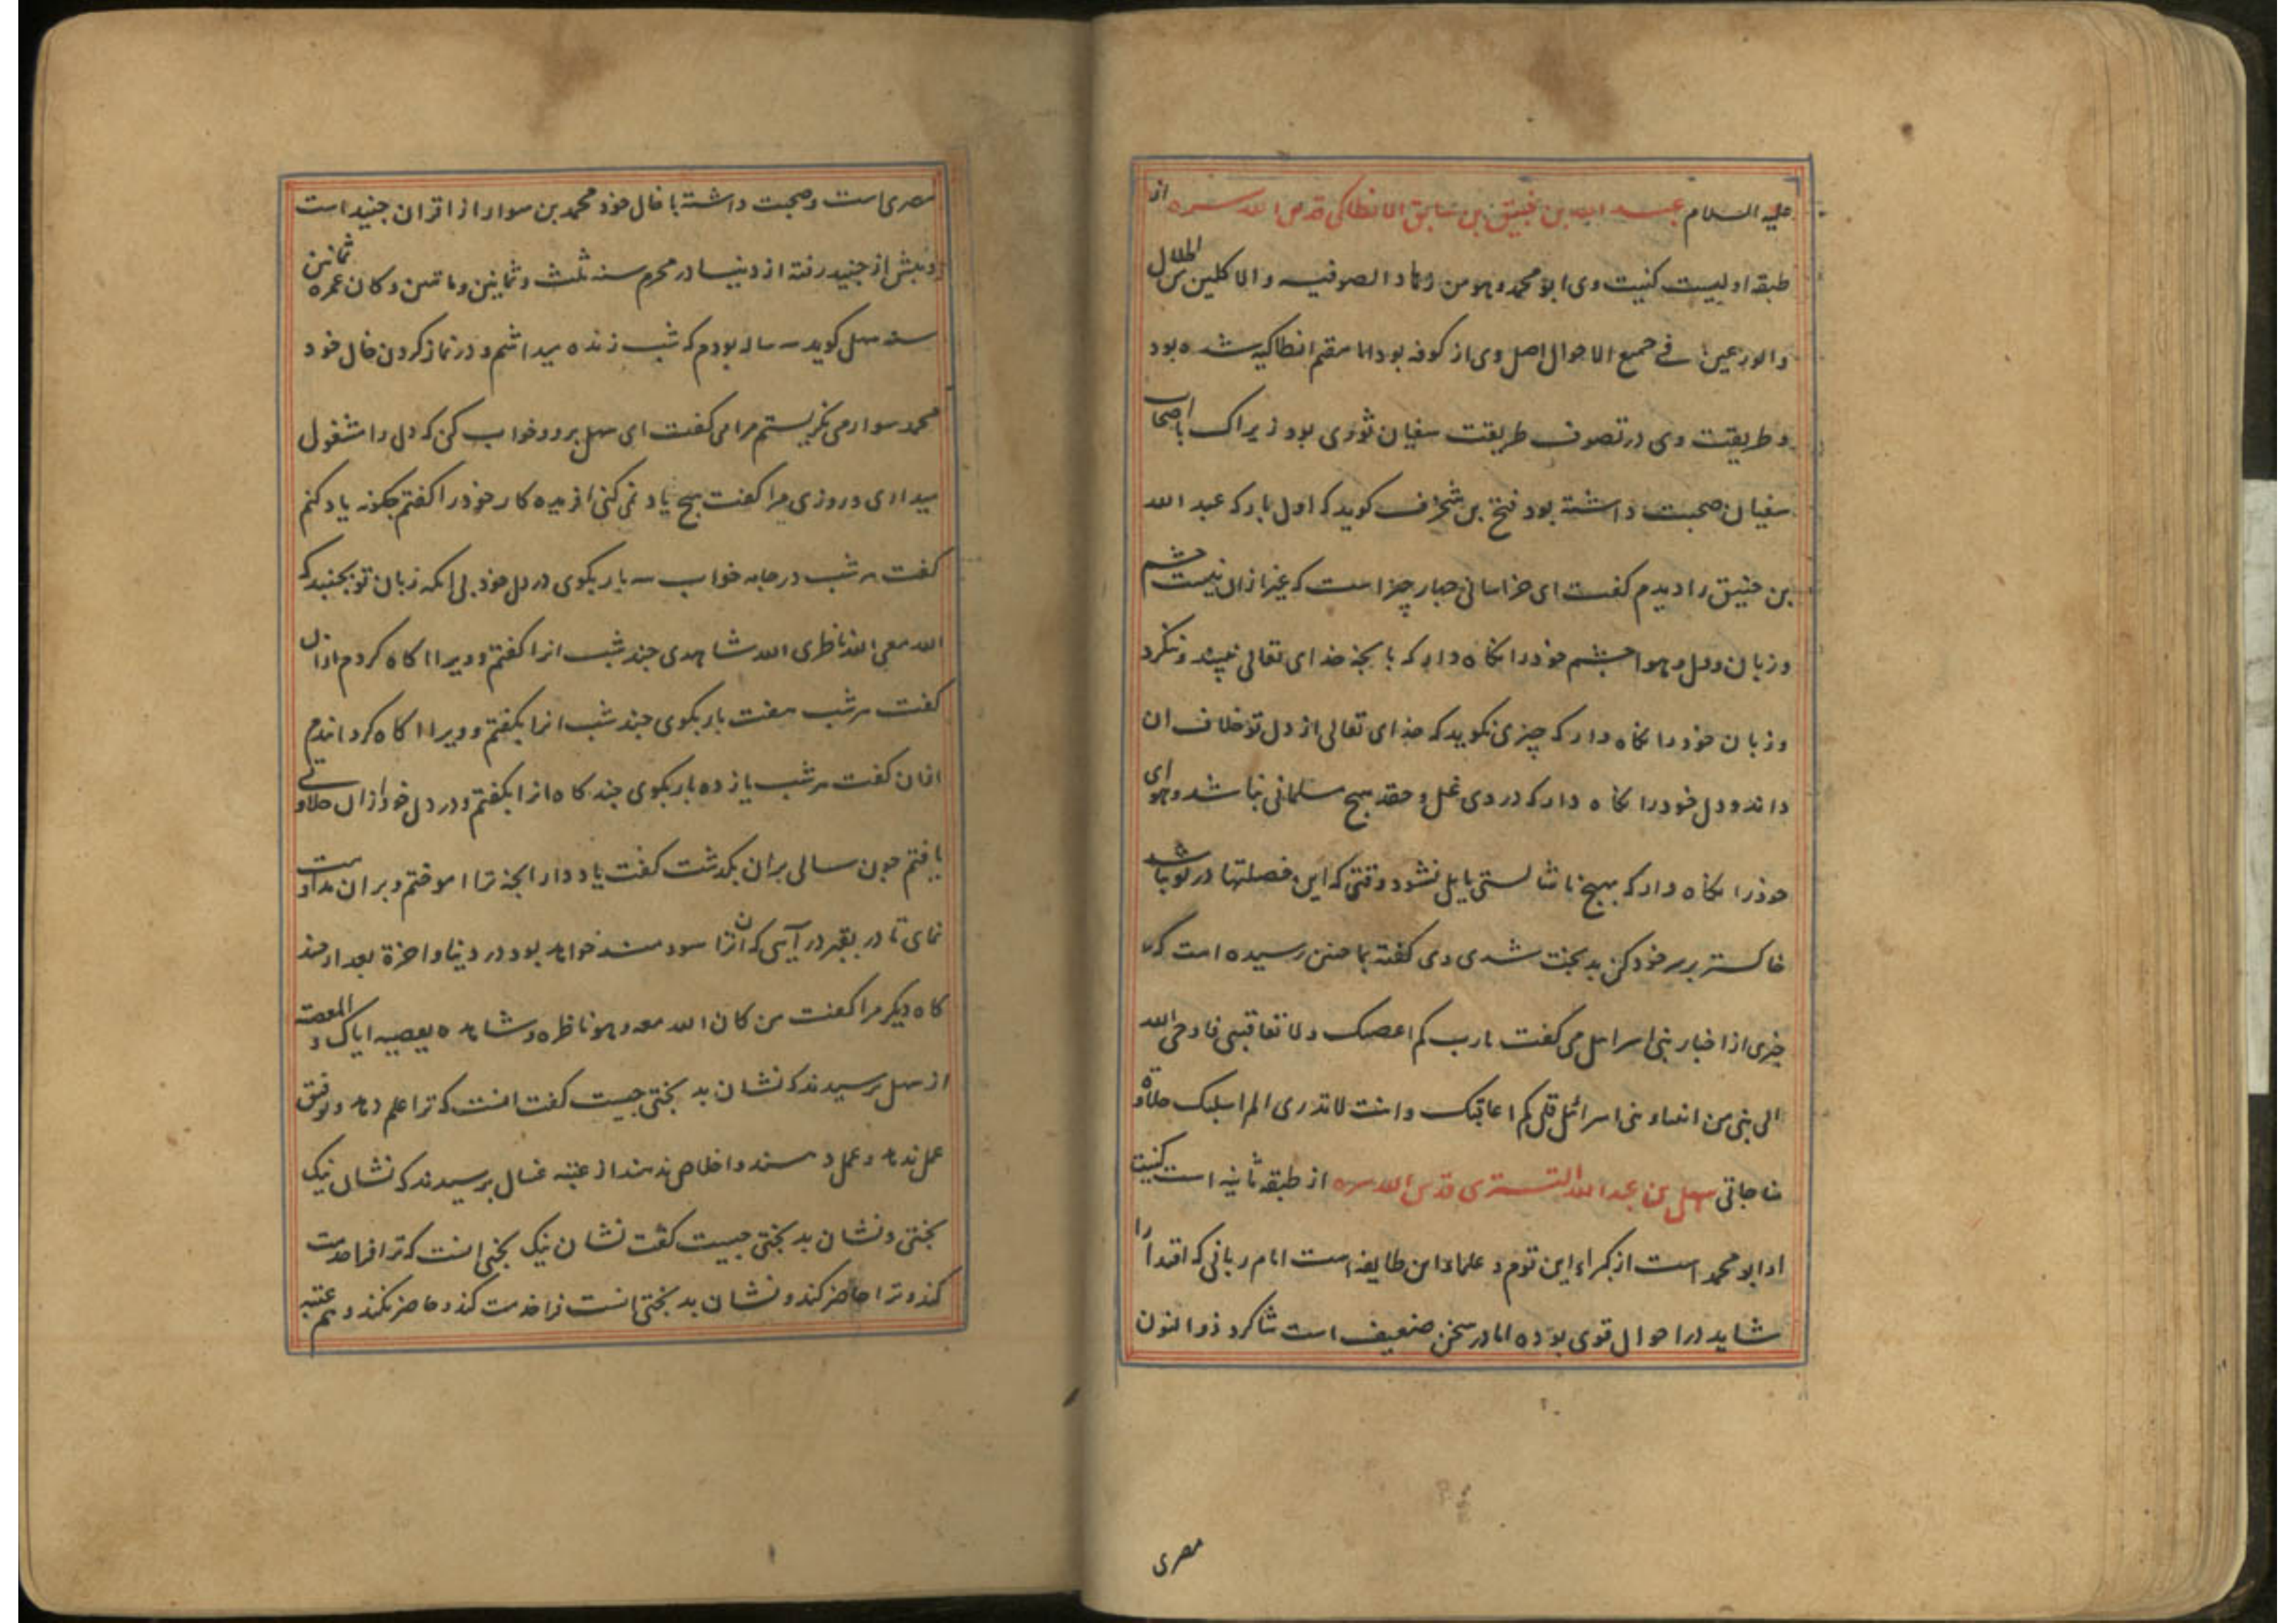 علیه السلام عبد الله بن خبیق بن سابق الانطاکی قدس الله سره از
طبقه اولیست کنیت وی ابو محمد وهو من زهاد الصوفیه والاکلین من الحلال
والورعین فی جمیع الاحوال اصل وی از کوفه بود اما مقیم انطاکیه شده بود
وطریقت وی در تصوف طریقت سفیان ثوری بود زیراک باصحاب
سفیان صحبت داشته بود فتح بن شخرف کوید که اول بار که عبد الله
بن خبیق را دیدم کفت ای خراسانی چهار چیز است که غیر ازان نیست چشم
وزبان ودل وهوا چشم خود را نکاه دار که بانجه خدای تعالی نپسندد ننکرد
وزبان خود را نکاه دار که چیزی نکوید که خدای تعالی از دل تو خلاف ان
داند ودل خود را نکاه دار که در وی غل وحقد هیچ مسلمانی نباشد وهوای
خود را نکاه دار که بهیج ناشایستی مایل نشود ووقتی که این خصلتها در تو نباشد
خاکستر بر سر خود کن که بدبخت شدی وی کفته بما چنین رسیده است که
خبری از اخبار بنی اسرائیل می کفت یارب کم اعصیک ولا تعاقبنی فاوحی الله
الی نبی من انبیاء بنی اسرائل قل کم اعاقبک وانت لا تدری الم اسلبک حلاوة
مناجاتی سهل بن عبد الله التستری قدس الله سره از طبقه ثانیه است کنیت
او ابو محمد است از کبراء این قوم وعلماء این طایفه است امام ربانی که اقتدا را
شاید در احوال قوی بوده اما در سخن ضعیف است شاکرد ذو النون
مصری
مصری است وصحبت داشته با خال خود محمد بن سوار از اقران جنید است
وپیش از جنید رفته از دنیا در محرم سنه ثلث وثمانین وماتین وکان عمره ثمانین
سنه سهل کوید سه ساله بودم که شب زنده میداشتم ودر نماز کردن خال خود
محمد سوار می نکریستم مرا می کفت ای سهل برو وخواب کن که دل را مشغول
میداری وروزی مرا کفت هیچ یاد نمی کنی افریده کار خود را کفتم چکونه یاد کنم
کفت هر شب در جامه خواب سه بار بکوی در دل خود بی انکه زبان تو بجنبد که
الله معی الله ناظری الله شاهدی چند شب انرا کفتم وویرا اکاه کردم ازان
کفت هر شب هفت بار بکوی چند شب انرا بکفتم وویرا اکاه کردانیدم
ازان کفت هر شب یازده بار بکوی چند کاه انرا بکفتم ودر دل خود ازان حلاوتی
یافتم چون سالی بران بکذشت کفت یاد دار انجه ترا اموختم وبران مداومت
نمای تا در بقبر در آیی که ان ترا سودمند خواهد بود در دنیا واخرة بعد از چند
کاه دیکر مرا کفت من کان الله معه وهو ناظره وشاهده یعصیه ایاک والمعصیة
از سهل پرسیدند که نشان بدبختی چیست کفت انست که ترا علم دهد وتوفیق
عمل ندهد وعمل دهند واخلاص ندهند از عتبه غسال پرسیدند که نشان نیک
بختی ونشان بدبختی چیست کفت نشان نیک بختی انست که ترا فرا خدمت
کند وترا حاضر کند ونشان بدبختی انست فرا خدمت کند وحاضر نکند وهم عتبه